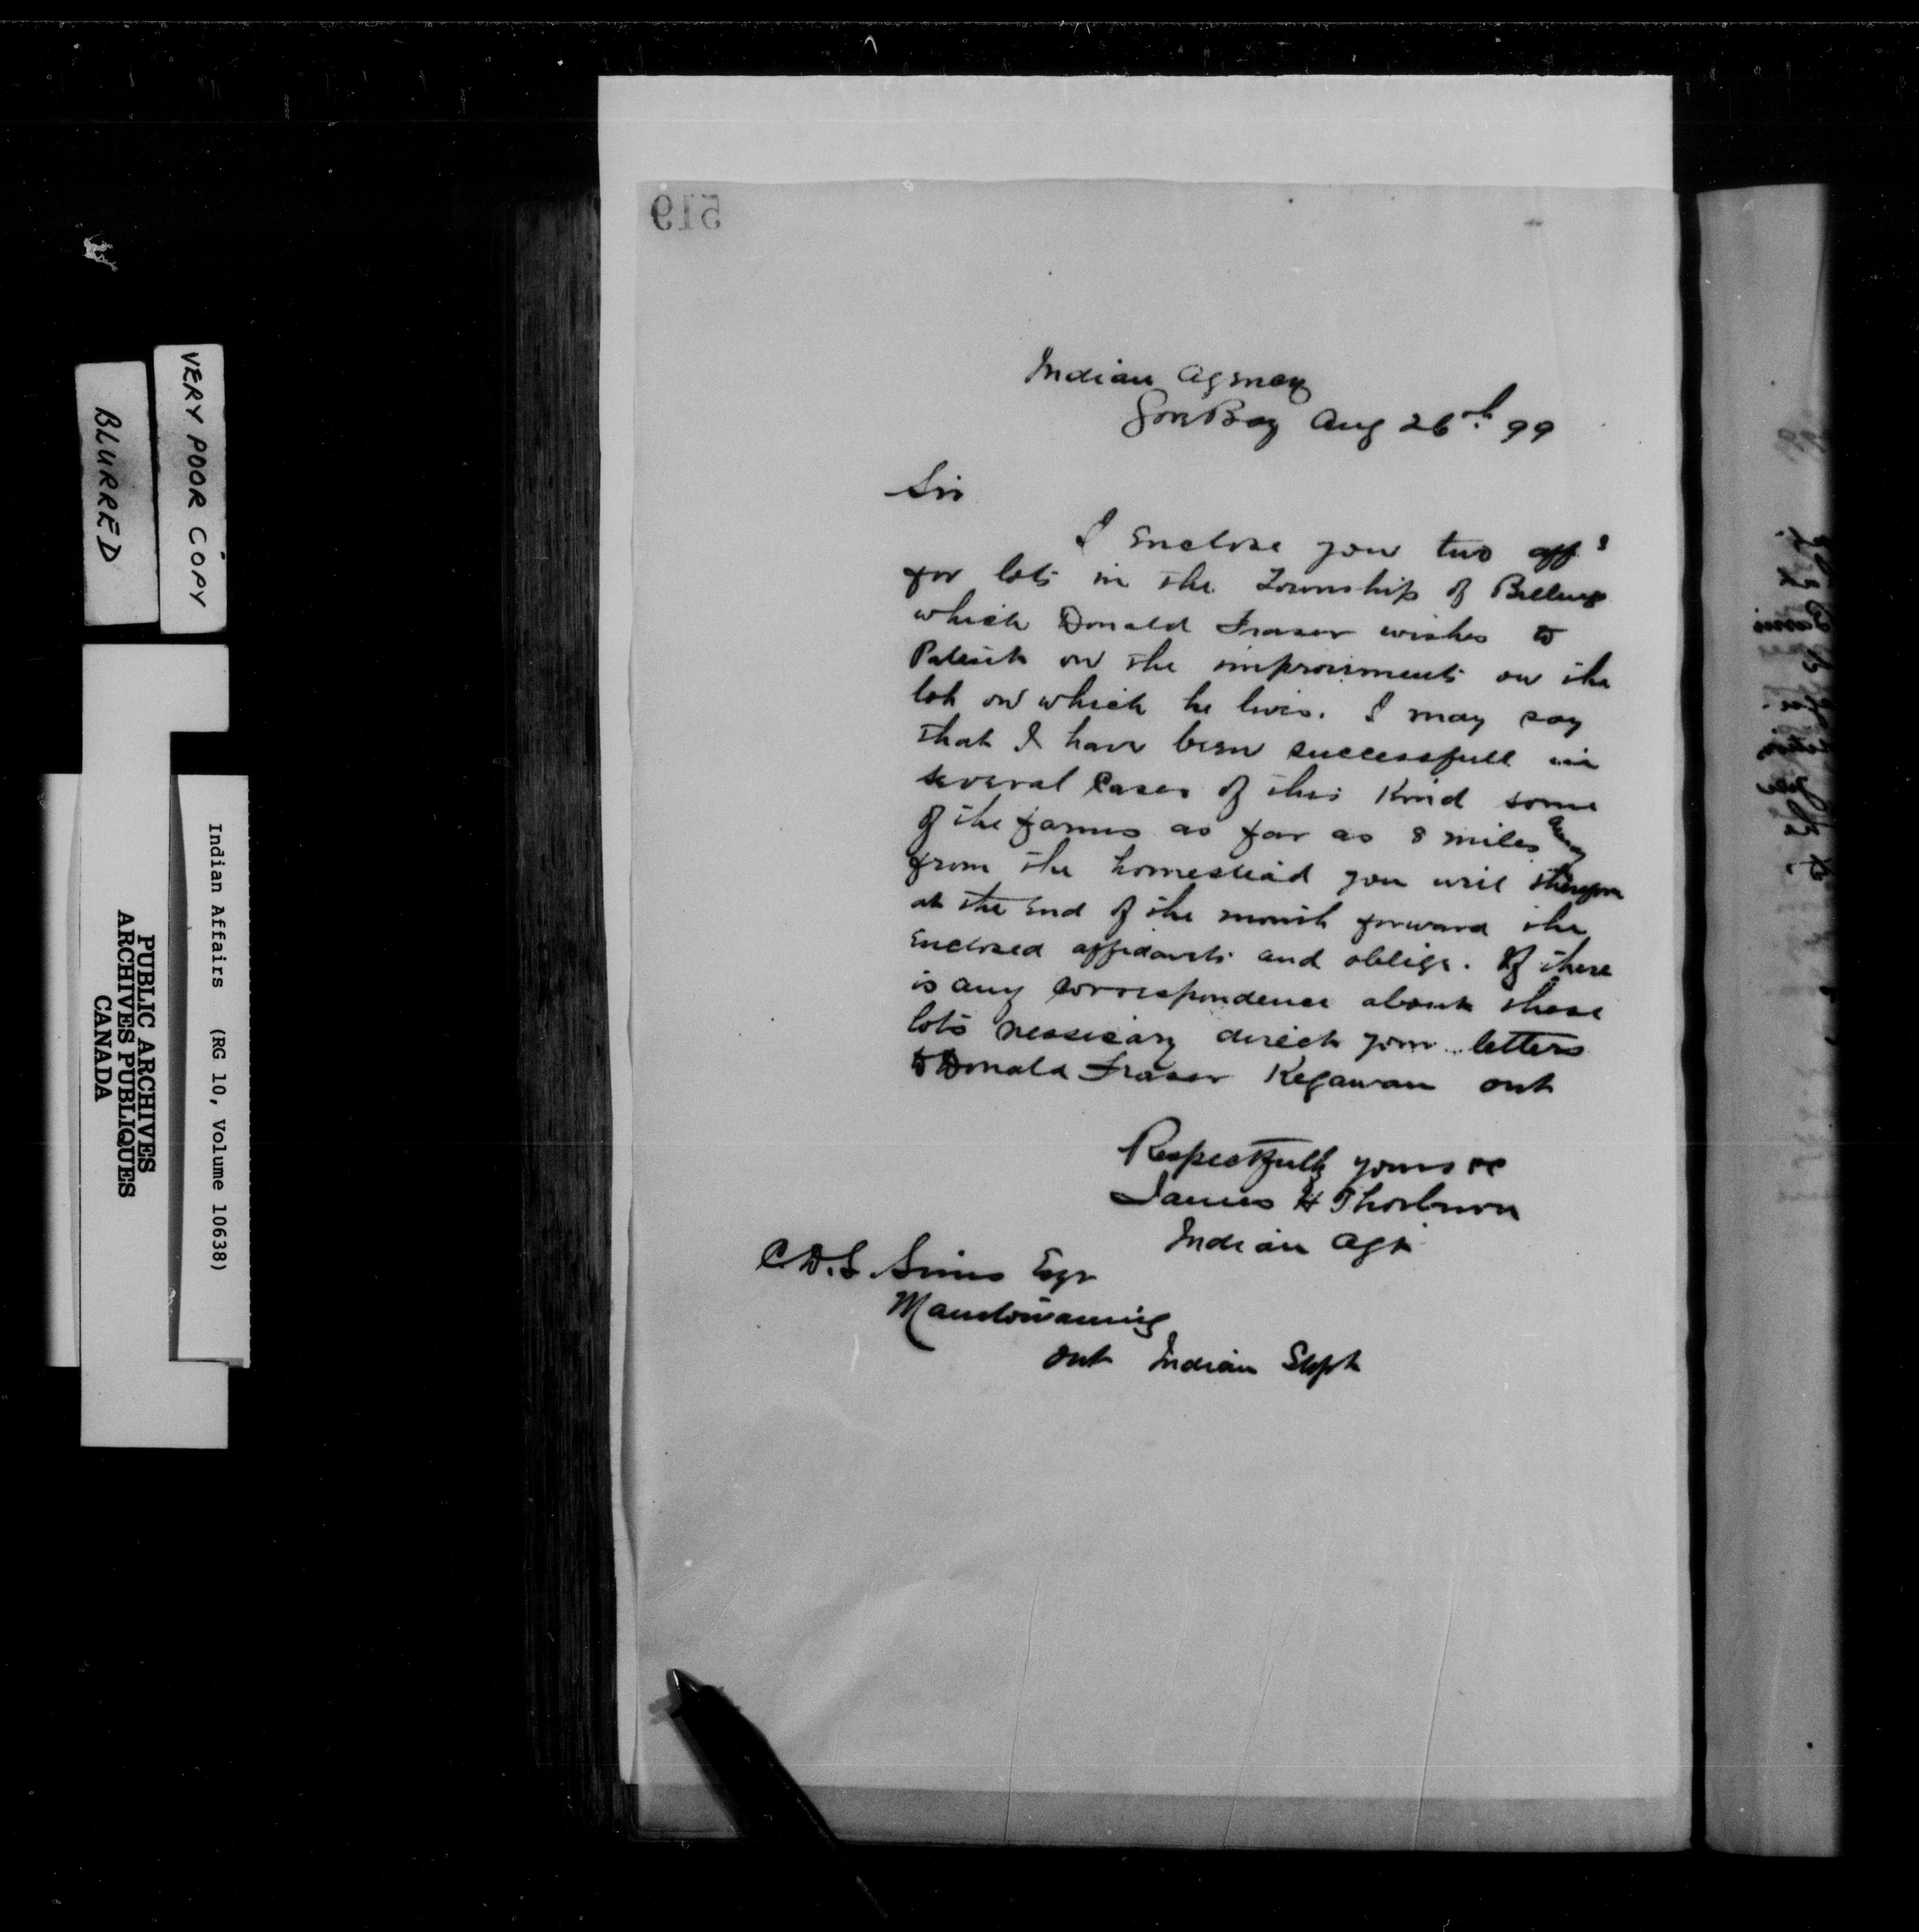 519
Indian Agency
Gore Bay Aug 26th 99
Sir
I Enclose you two aff s
for lots in the Township of Billings
which Donald Fraser wishes to
Patent on the improvments on the
lot on which he lives. I may say
that I have been successfull in
several Cases of this Kind some
of the farms as far as 8 miles away
from the homestead you will therefore
at the End of the month forward the
Enclosed affidavits and oblige. If there
is any Correspondence about these
lots nessesary direct your letters
to Donald Fraser Kagawan Ont
Respectfully yours &c
James H Thorburn
Indian Agt
C.D.S. Sims Esqr
Manitowaning
Ont Indian Supt
VERY POOR COPY
BLURRED
Indian Affairs (RG 10, Volume 10638)
PUBLIC ARCHIVES
ARCHIVES PUBLIQUES
CANADA